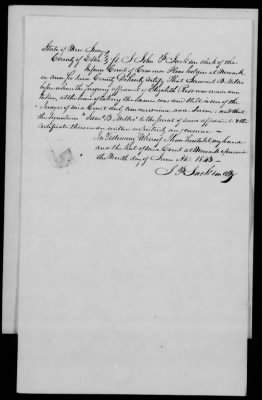 State of New Jersey
County of Essex } ss I John P. Jackson clerk of the
Inferior Court of Common Pleas holden at Newark
in and for said County Do hereby certify That Samuel B. Miller
before whom the foregoing affidavit of Elizabeth Ross was made was
at the time of taking the same was and still is one of the
Judges of said Court duly commissioned and sworn, and that
the signature "Saml B. Miller" to the jurat of said affidavit & the
certificate thereunder written is
In Testimony Whereof I have hereunto set my hand
and the Seal of said Court at Newark aforesaid
the Ninth day of June AD. 1843 —
J P Jackson Clk